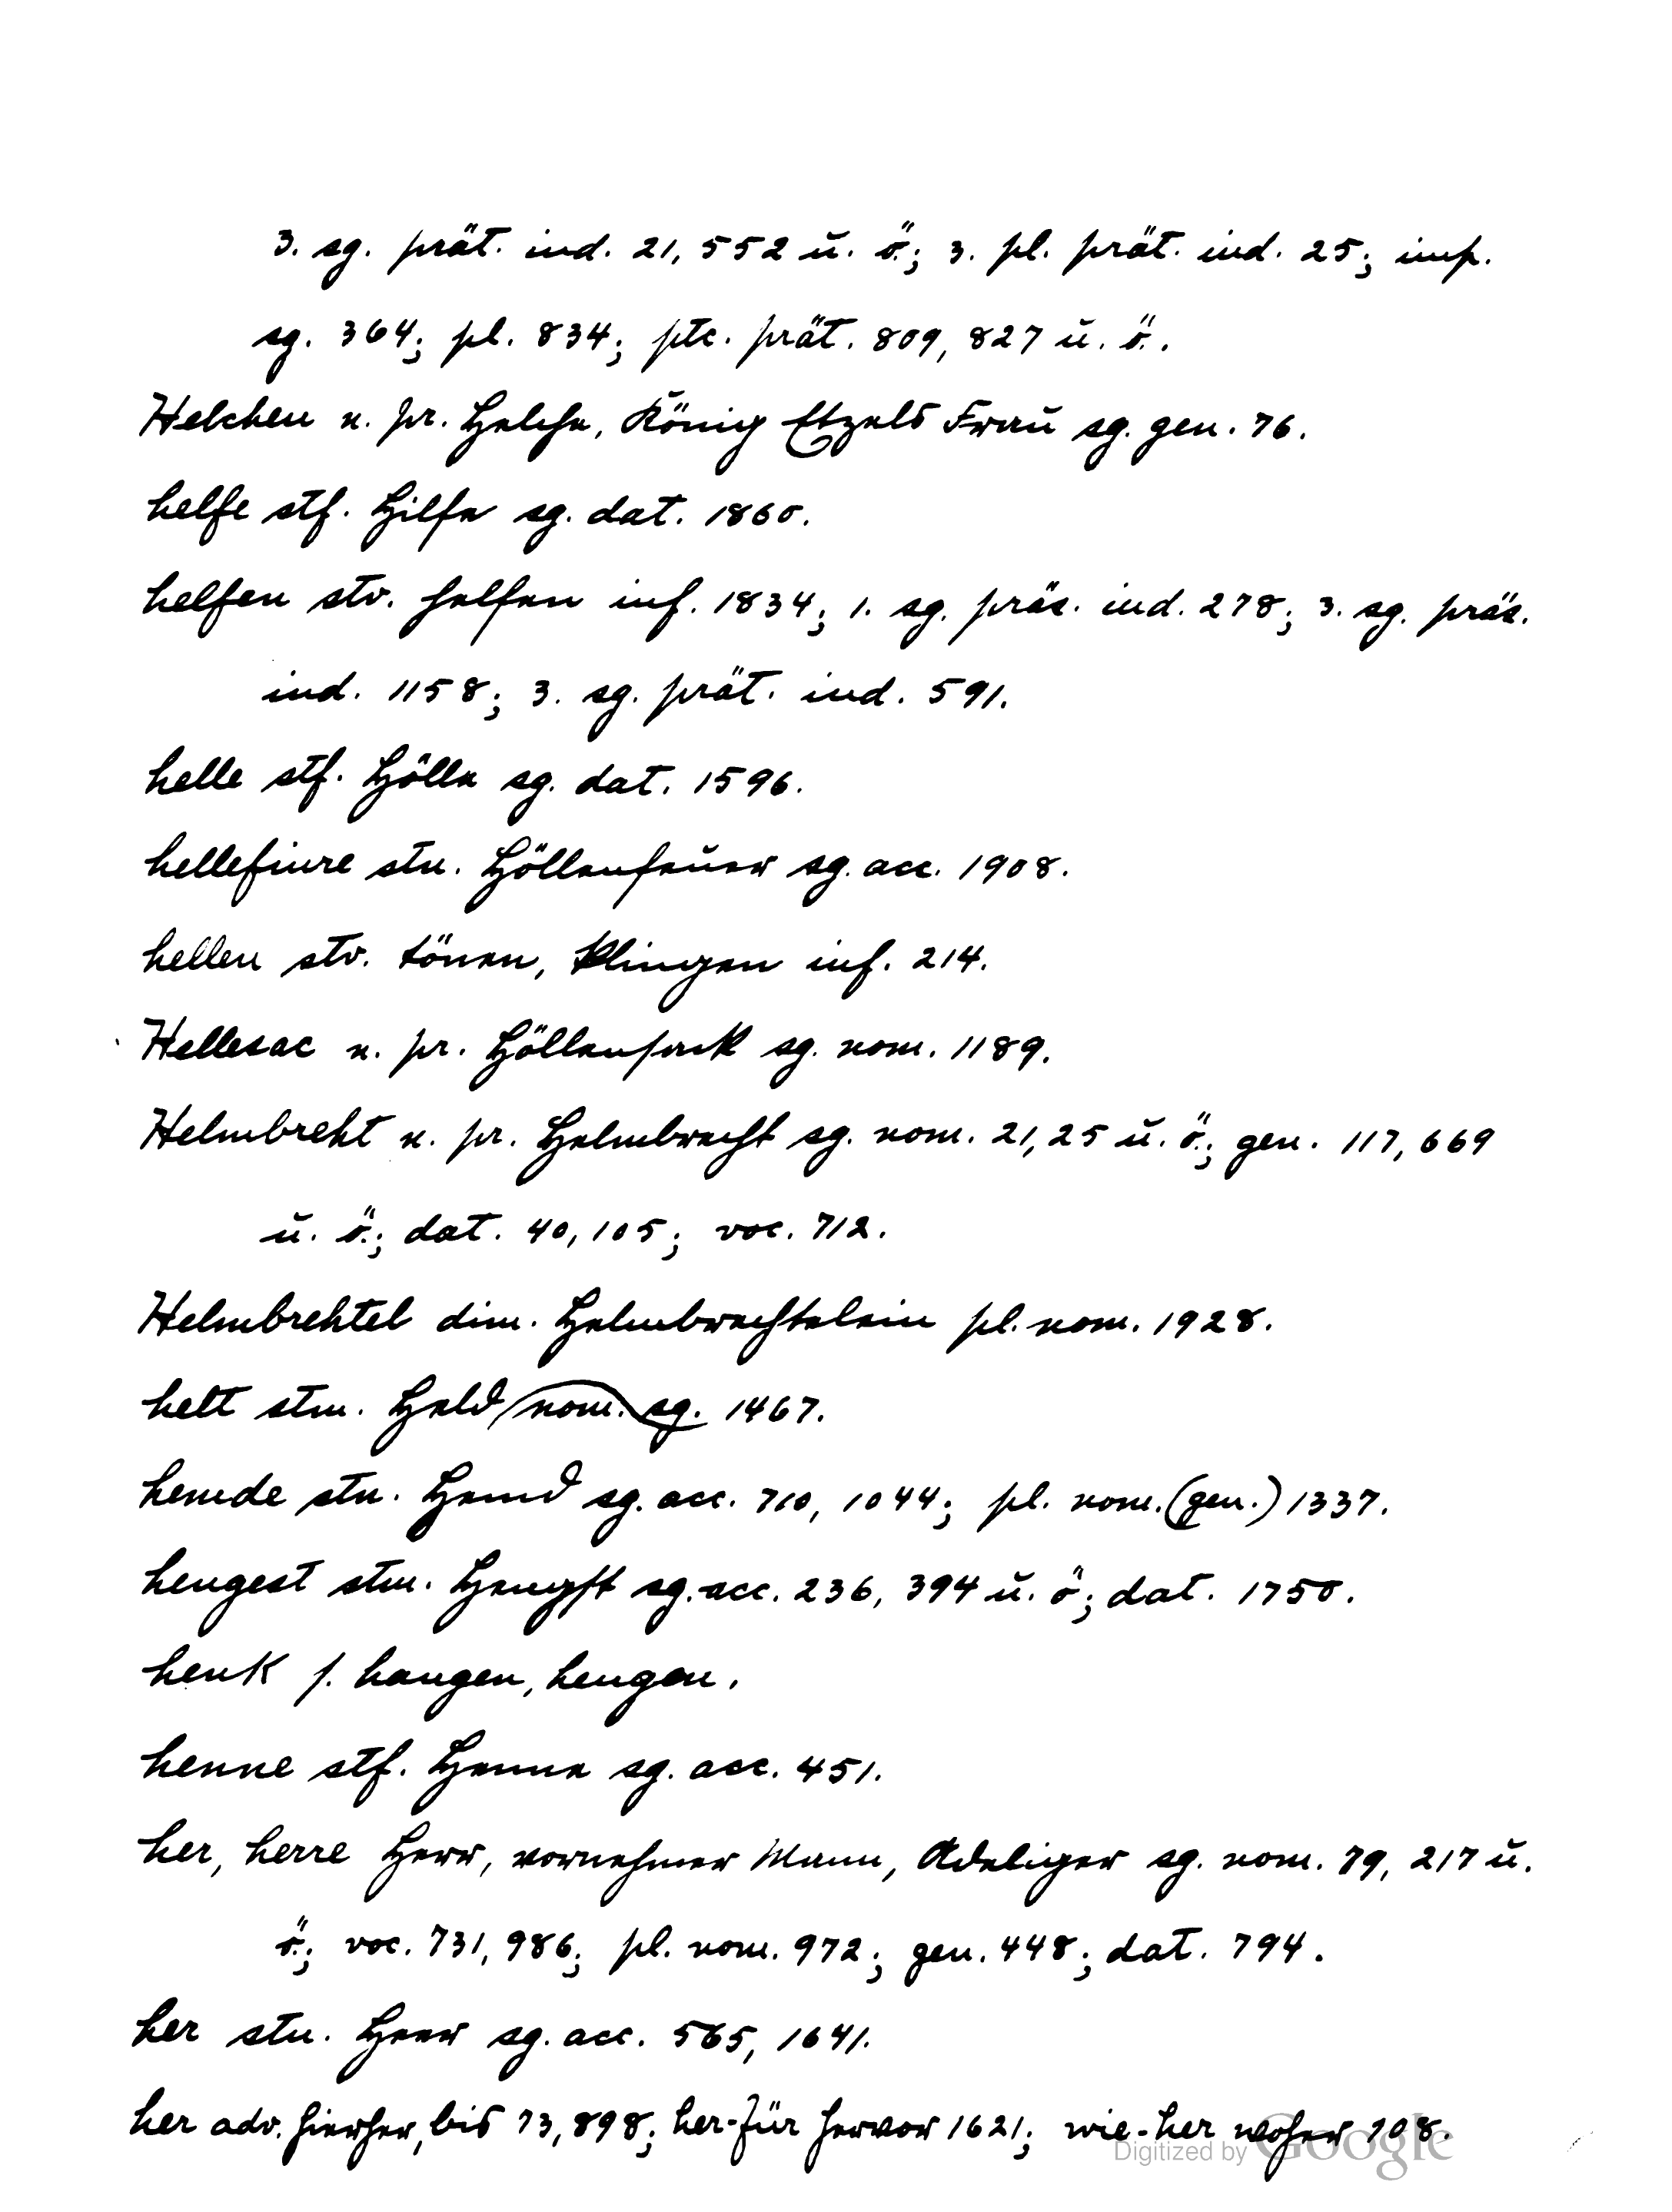 3. sg. prät. ind. 21, 552 u. ö.; 3. pl. prät. ind. 25; imp.
sg. 364; pl. 834; ptc. prät. 809, 827 u. ö..
Helchen n. pr. Helche, König Etzels Frau sg. gen. 76.
helfe stf. Hilfe sg. dat. 1860.
helfen stv. helfen inf. 1834; 1. sg. präs. ind. 278; 3. sg. präs.
ind. 1158; 3. sg. prät. ind. 591.
helle stf. Hölle sg. dat. 1596.
hellefiure stn. Höllenfeuer sg. acc. 1908.
hellen stv. tönen, klingen inf. 214.
Hellesac n. pr. Höllensack sg. nom. 1189.
Helmbreht n. pr. Helmbrecht sg. nom. 21, 25 u. ö.; gen. 117, 669
u. ö.; dat. 40, 105; voc. 712.
Helmbrehtel dim. Helmbrechtelein pl. nom. 1928.
helt stm. Held nom. sg. 1467.
hemde stn. Hemd sg. acc. 710, 1044; pl. nom. (gen.) 1337.
hengest stm. Hengst sg. acc. 236, 394 u. ö; dat. 1750.
henk s. hangen, hengen.
henne stf. Henne sg. acc. 451.
her, herre Herr, vornehmer Mann, Adeliger sg. nom. 79, 217 u.
ö.; voc. 731, 986; pl. nom. 972; gen. 448; dat. 794.
her stn. Heer sg. acc. 565, 1641.
her adv. hierher, bis 73, 898; her-für hervor 1621; wie-her woher 708.
Digitized by Google